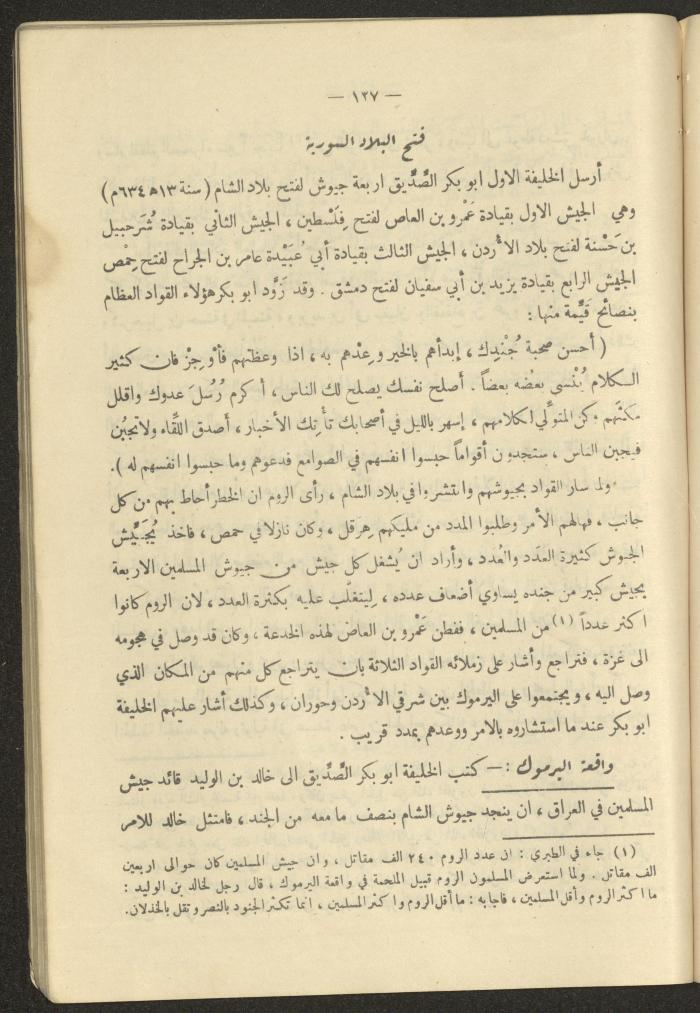 — ١٢٧ —
فتح البلاد السورية
أرسل الخليفة الاول ابو بكر الصِّدِّيق اربعة جيوش لفتح بلاد الشام ( سنة ١٣ ﻫ ٦٣٤ م )
وهي الجيش الاول بقيادة عَمْرو بن العاص لفتح فِلَسْطين ، الجيش الثاني بقيادة شُرَحبيل
بن حَسْنة لفتح بلاد الأُردن ، الجيش الثالث بقيادة أبي عُبَيْدة عامر بن الجراح لفتح حِمْص
الجيش الرابع بقيادة يزيد بن أبي سفيان لفتح دمشق . وقد زَوَّد ابو بكر هؤلاء القواد العظام
بنصائح قَيِّمة منها :
( أحسن صحبة جُنْدِك ، إبدأهم بالخير وعِدْهم به ، اذا وعظتهم فأوجِزْ فان كثير
الكلام يُنْسي بعضُه بعضاً . أصلح نفسك يصلح لك الناس ، أكرم رُسُلَ عدوك واقلل
مكثَهم وكن المتولّي لكلامهم ، إسهر بالليل في أصحابك تأتِك الأخبار ، أصدق اللّقاء ولا تجبُن
فيجبن الناس ، ستجدون أقواماً حبسوا انفسهم في الصوامع فدعوهم وما حبسوا انفسهم له ) .
ولما سار القواد بجيوشهم وانتشروا في بلاد الشام ، رأى الروم ان الخطر أحاط بهم من كل
جانب ، فهالهم الأمر وطلبوا المدد من مليكهم هِرقل ، وكان نازلا في حمص ، فاخذ يُجَيِّش
الجيوش كثيرة العدَد والعُدد ، وأراد ان يُشغل كل جيش من جيوش المسلمين الاربعة
بجيش كبير من جنده يساوي أضعاف عدده ، لِيتغلَّب عليه بكثرة العدد ، لان الروم كانوا
اكثر عدداً (١) من المسلمين ، ففطن عَمْرو بن العاص لهذه الخدعة ، وكان قد وصل في هجومه
الى غزة ، فتراجع وأشار على زملائه القواد الثلاثة بان يتراجع كل منهم من المكان الذي
وصل اليه ، ويجتمعوا على اليرموك بين شرقي الأُردن وحوران ، وكذلك أشار عليهم الخليفة
ابو بكر عند ما استشاروه بالامر ووعدهم بمدد قريب .
واقعة اليرموك : — كتب الخليفة ابو بكر الصِّدِّيق الى خالد بن الوليد قائد جيش
المسلمين في العراق ، ان ينجد جيوش الشام بنصف ما معه من الجند ، فامتثل خالد للامر
(١) جاء في الطبري : ان عدد الروم ٢٤٠ الف مقاتل ، وان جيش المسلمين كان حوالى اربعين
الف مقاتل . ولما استعرض المسلمون الروم قبيل الملحمة في واقعة اليرموك ، قال رجل لخالد بن الوليد :
ما اكثر الروم وأقل المسلمين ، فاجابه : ما أقل الروم واكثر المسلمين ، انما تكثر الجنود بالنصر وتقل بالخذلان .